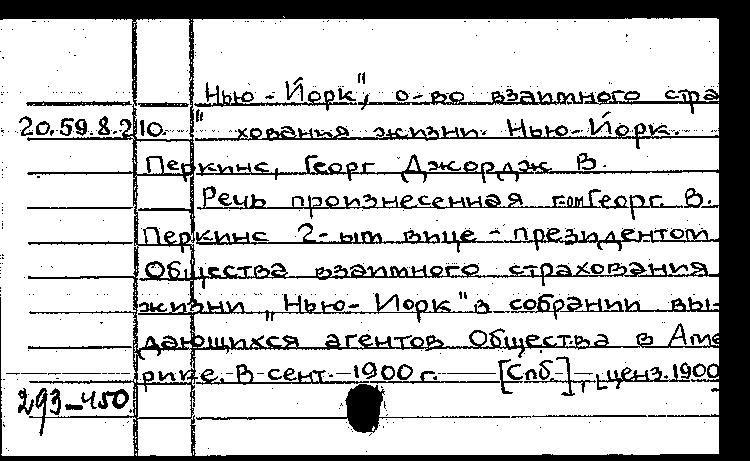 Нью-Йорк", о-во взаимного стра
20.59.8.210. " хования жизни. Нью-Йорк.
Перкинс, Георг Джордж В.
Речь произнесенная г-ом Георг. В.
Перкинс 2-ым вице-президентом
Общества взаимного страхования
жизни „Нью-Йорк" в собрании вы-
дающихся агентов Общества в Аме
рике. В сент. 1900 г. [Спб], ценз. 1900
293-450